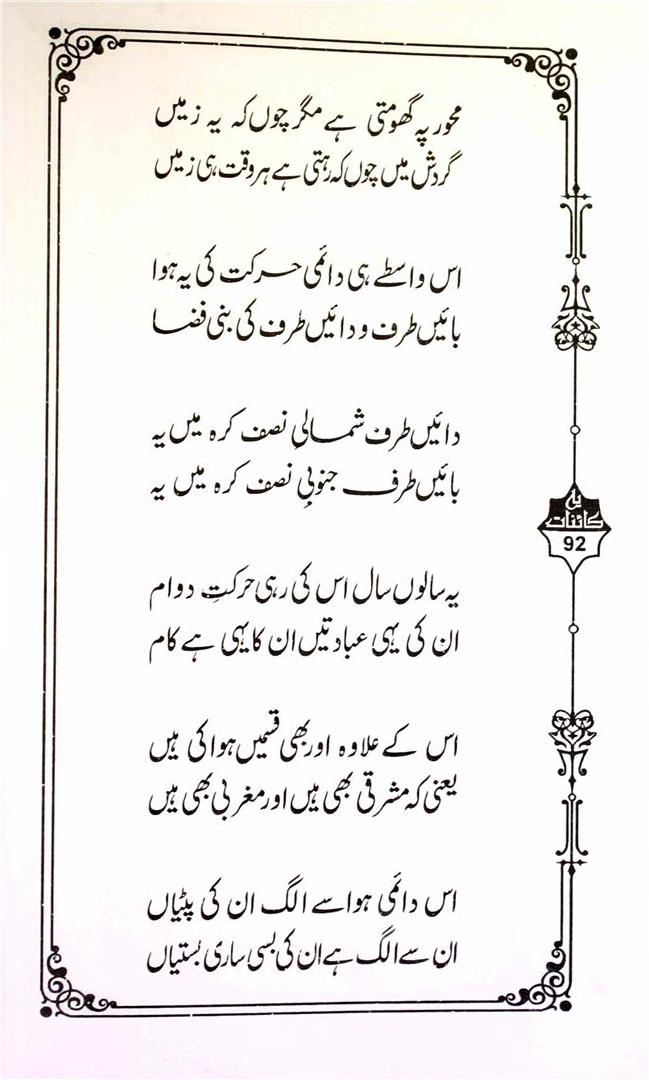 محور پہ گھومتی ہے مگر چوں کہ یہ زمیں
گردش میں چوں کہ رہتی ہے ہر وقت ہی زمیں
اس واسطے ہی دائمی حرکت کی یہ ہوا
بائیں طرف و دائیں طرف کی بنی فضا
دائیں طرف شمالیِ نصف کرہ میں یہ
بائیں طرف جنوبیِ نصف کرہ میں یہ
کائنات
92
یہ سالوں سال اس کی رہی حرکتِ دوام
ان کی یہی عبادتیں ان کا یہی ہے کام
اس کے علاوہ اور بھی قسمیں ہوا کی ہیں
یعنی کہ مشرقی بھی ہیں اور مغربی بھی ہیں
اس دائمی ہوا سے الگ ان کی پٹیاں
ان سے الگ ہے ان کی بسی ساری بستیاں